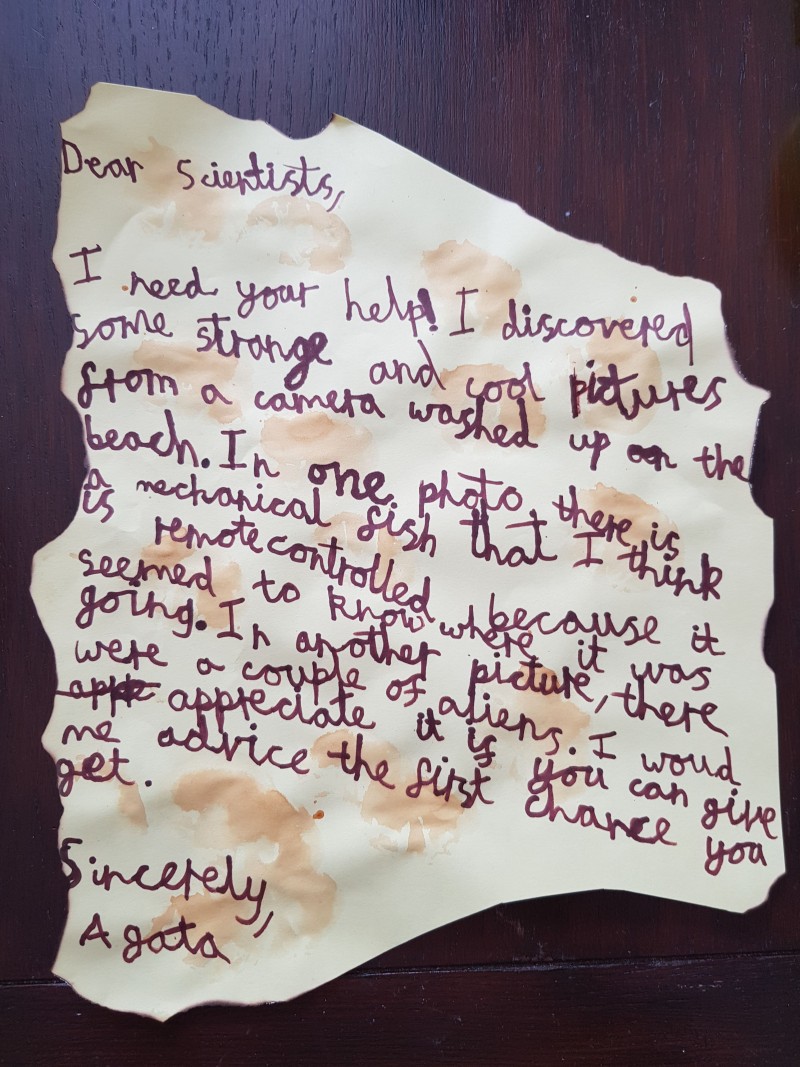 Dear Scientists,
I need your help! I discovered
some strange and cool pictures
from a camera washed up on the
beach. In one photo, there is
a mechanical fish that I think
is remote controlled because it
seemed to know where it was
going. In another picture, there
were a couple of aliens. I woud
appreciate it if you can give
me advice the first chance you
get.
Sincerely,
Agata